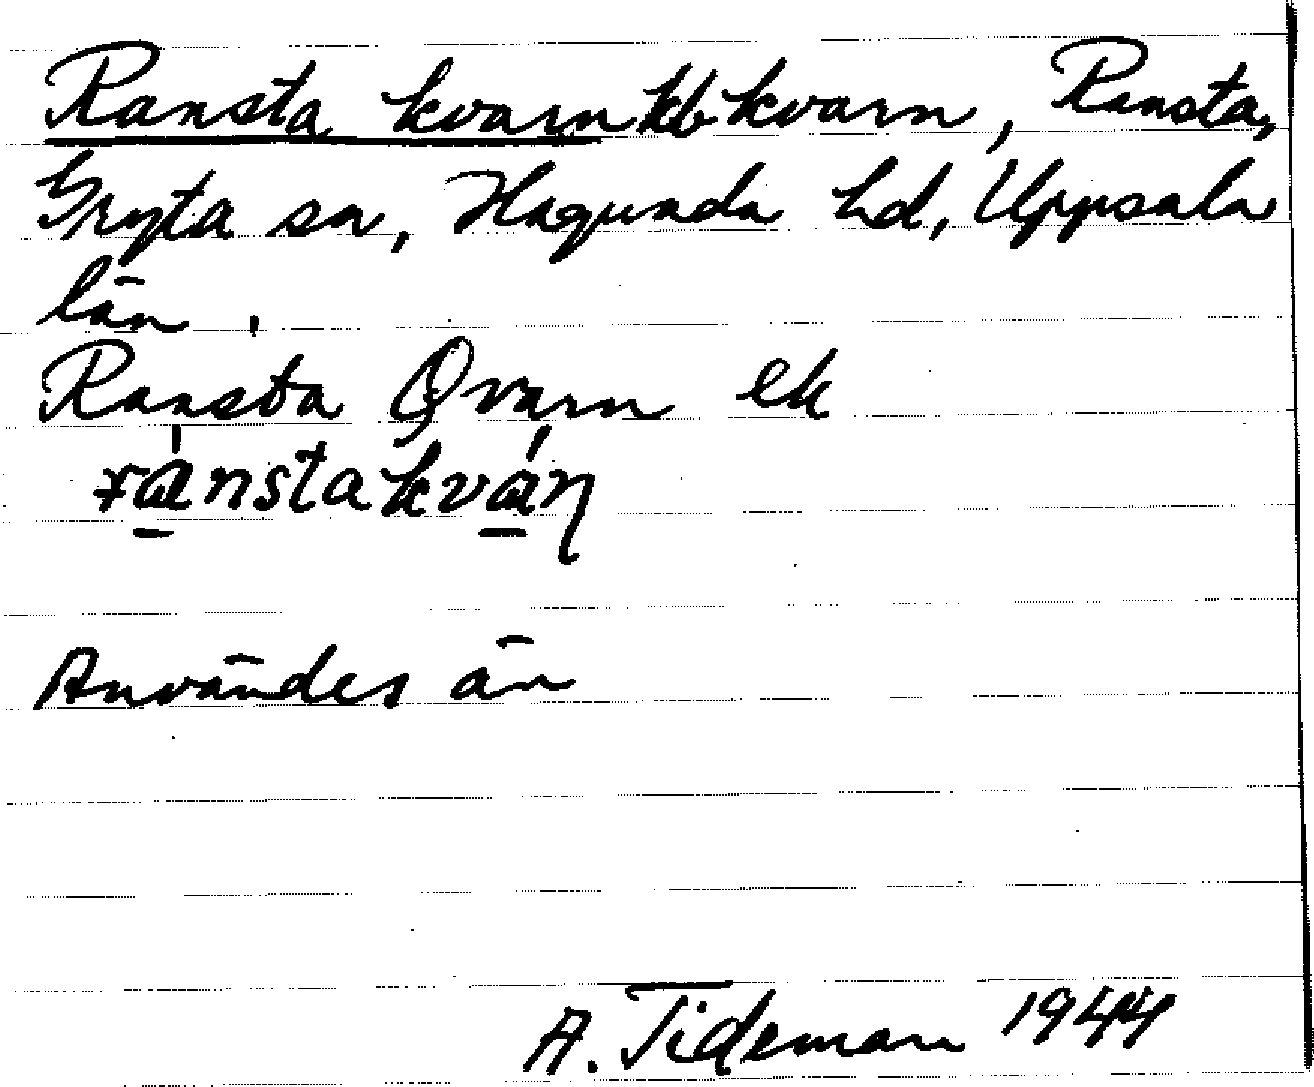 Ransta kvarn kbkvarn, Ransta,
Gryta sn, Hagunda hd, Uppsala
län.
Ransta Qvarn ek
ránstakván
Användes än
A. Tideman 1944